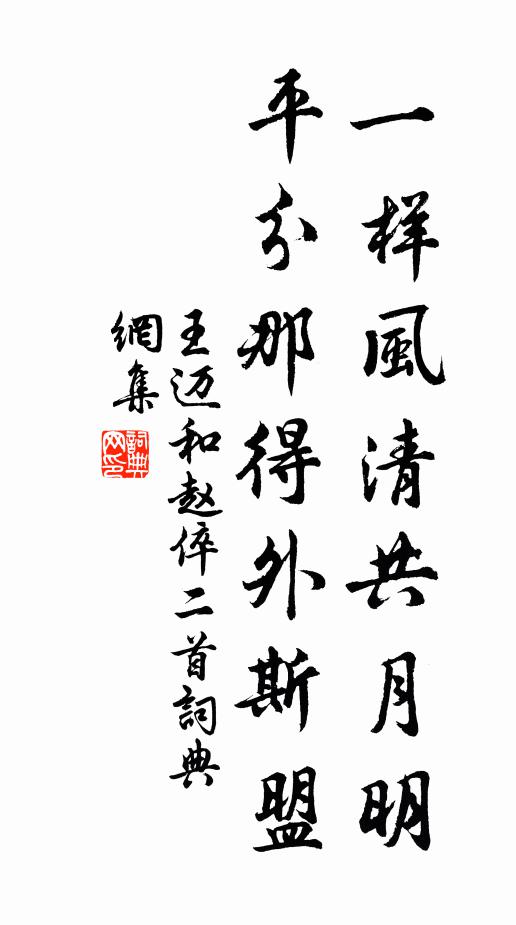 一样風清共月明
平分那得外斯盟
王迈和赵倅二首詞典
網集
詞典网印